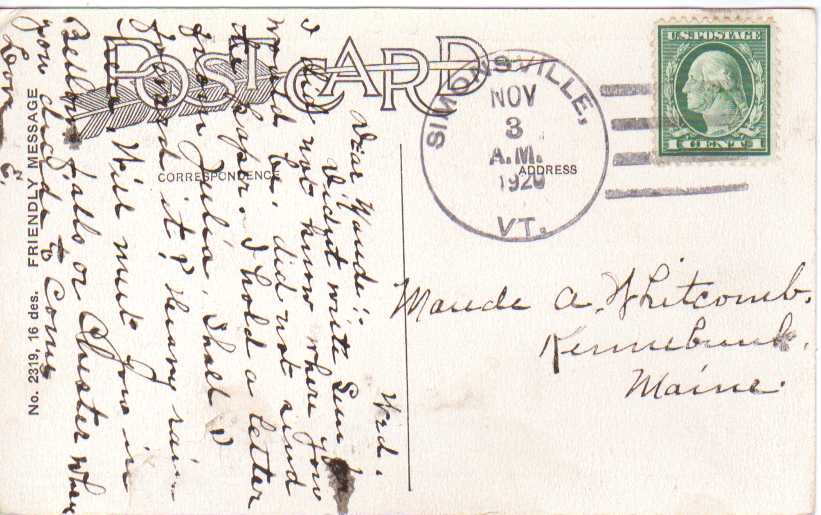 POST CARD
CORRESPONDENCE
ADDRESS
No. 2319, 16 des. FRIENDLY MESSAGE
SIMONSVILLE,
NOV
3
A.M.
1920
VT.
U.S. POSTAGE
1 CENT 1
Maude A. Whitcomb.
Kennebunk.
Maine.
Wed.
Dear Maude:-
Didnt write Sun for
I did not know where you
would be, did not send
the paper. I hold a letter
from Julia, Shall I
forward it? Heavy rain
here. Will meet you in
Bellows falls or Chester when
you decide to come
Love E.